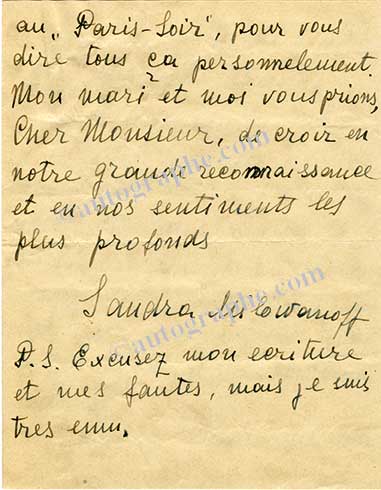 au „Paris-Soir", pour vous
dire tous ça personnelement.
Mon mari et moi vous prions,
Cher Monsieur, de croir en
notre grande reconnaissance
et en nos sentiments les
plus profonds
Sandra Milowanoff
P.S. Excusez mon ecriture
et mes fautes, mais je suis
tres emu.
autographe.com
autographe.com
autographe.com